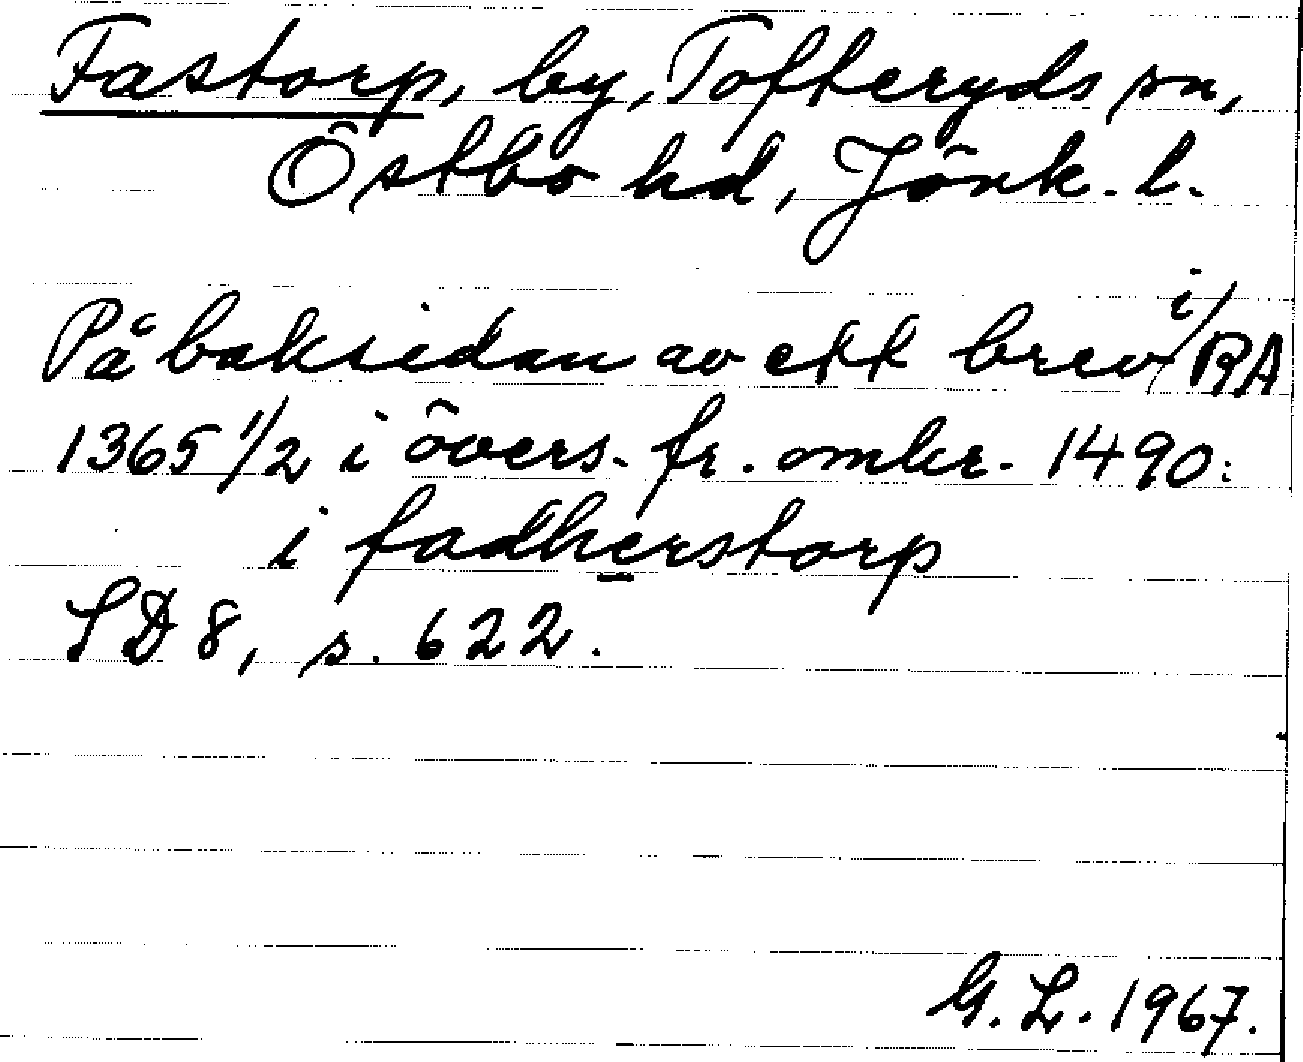 Fastorp, by, Tofteryds sn,
Östbo hd, Jönk. l.
På baksidan av ett brev i RA
1365 1/2 i övers. fr. omkr. 1490:
i fadherstorp
SD 8, s. 622.
G. L. 1967.